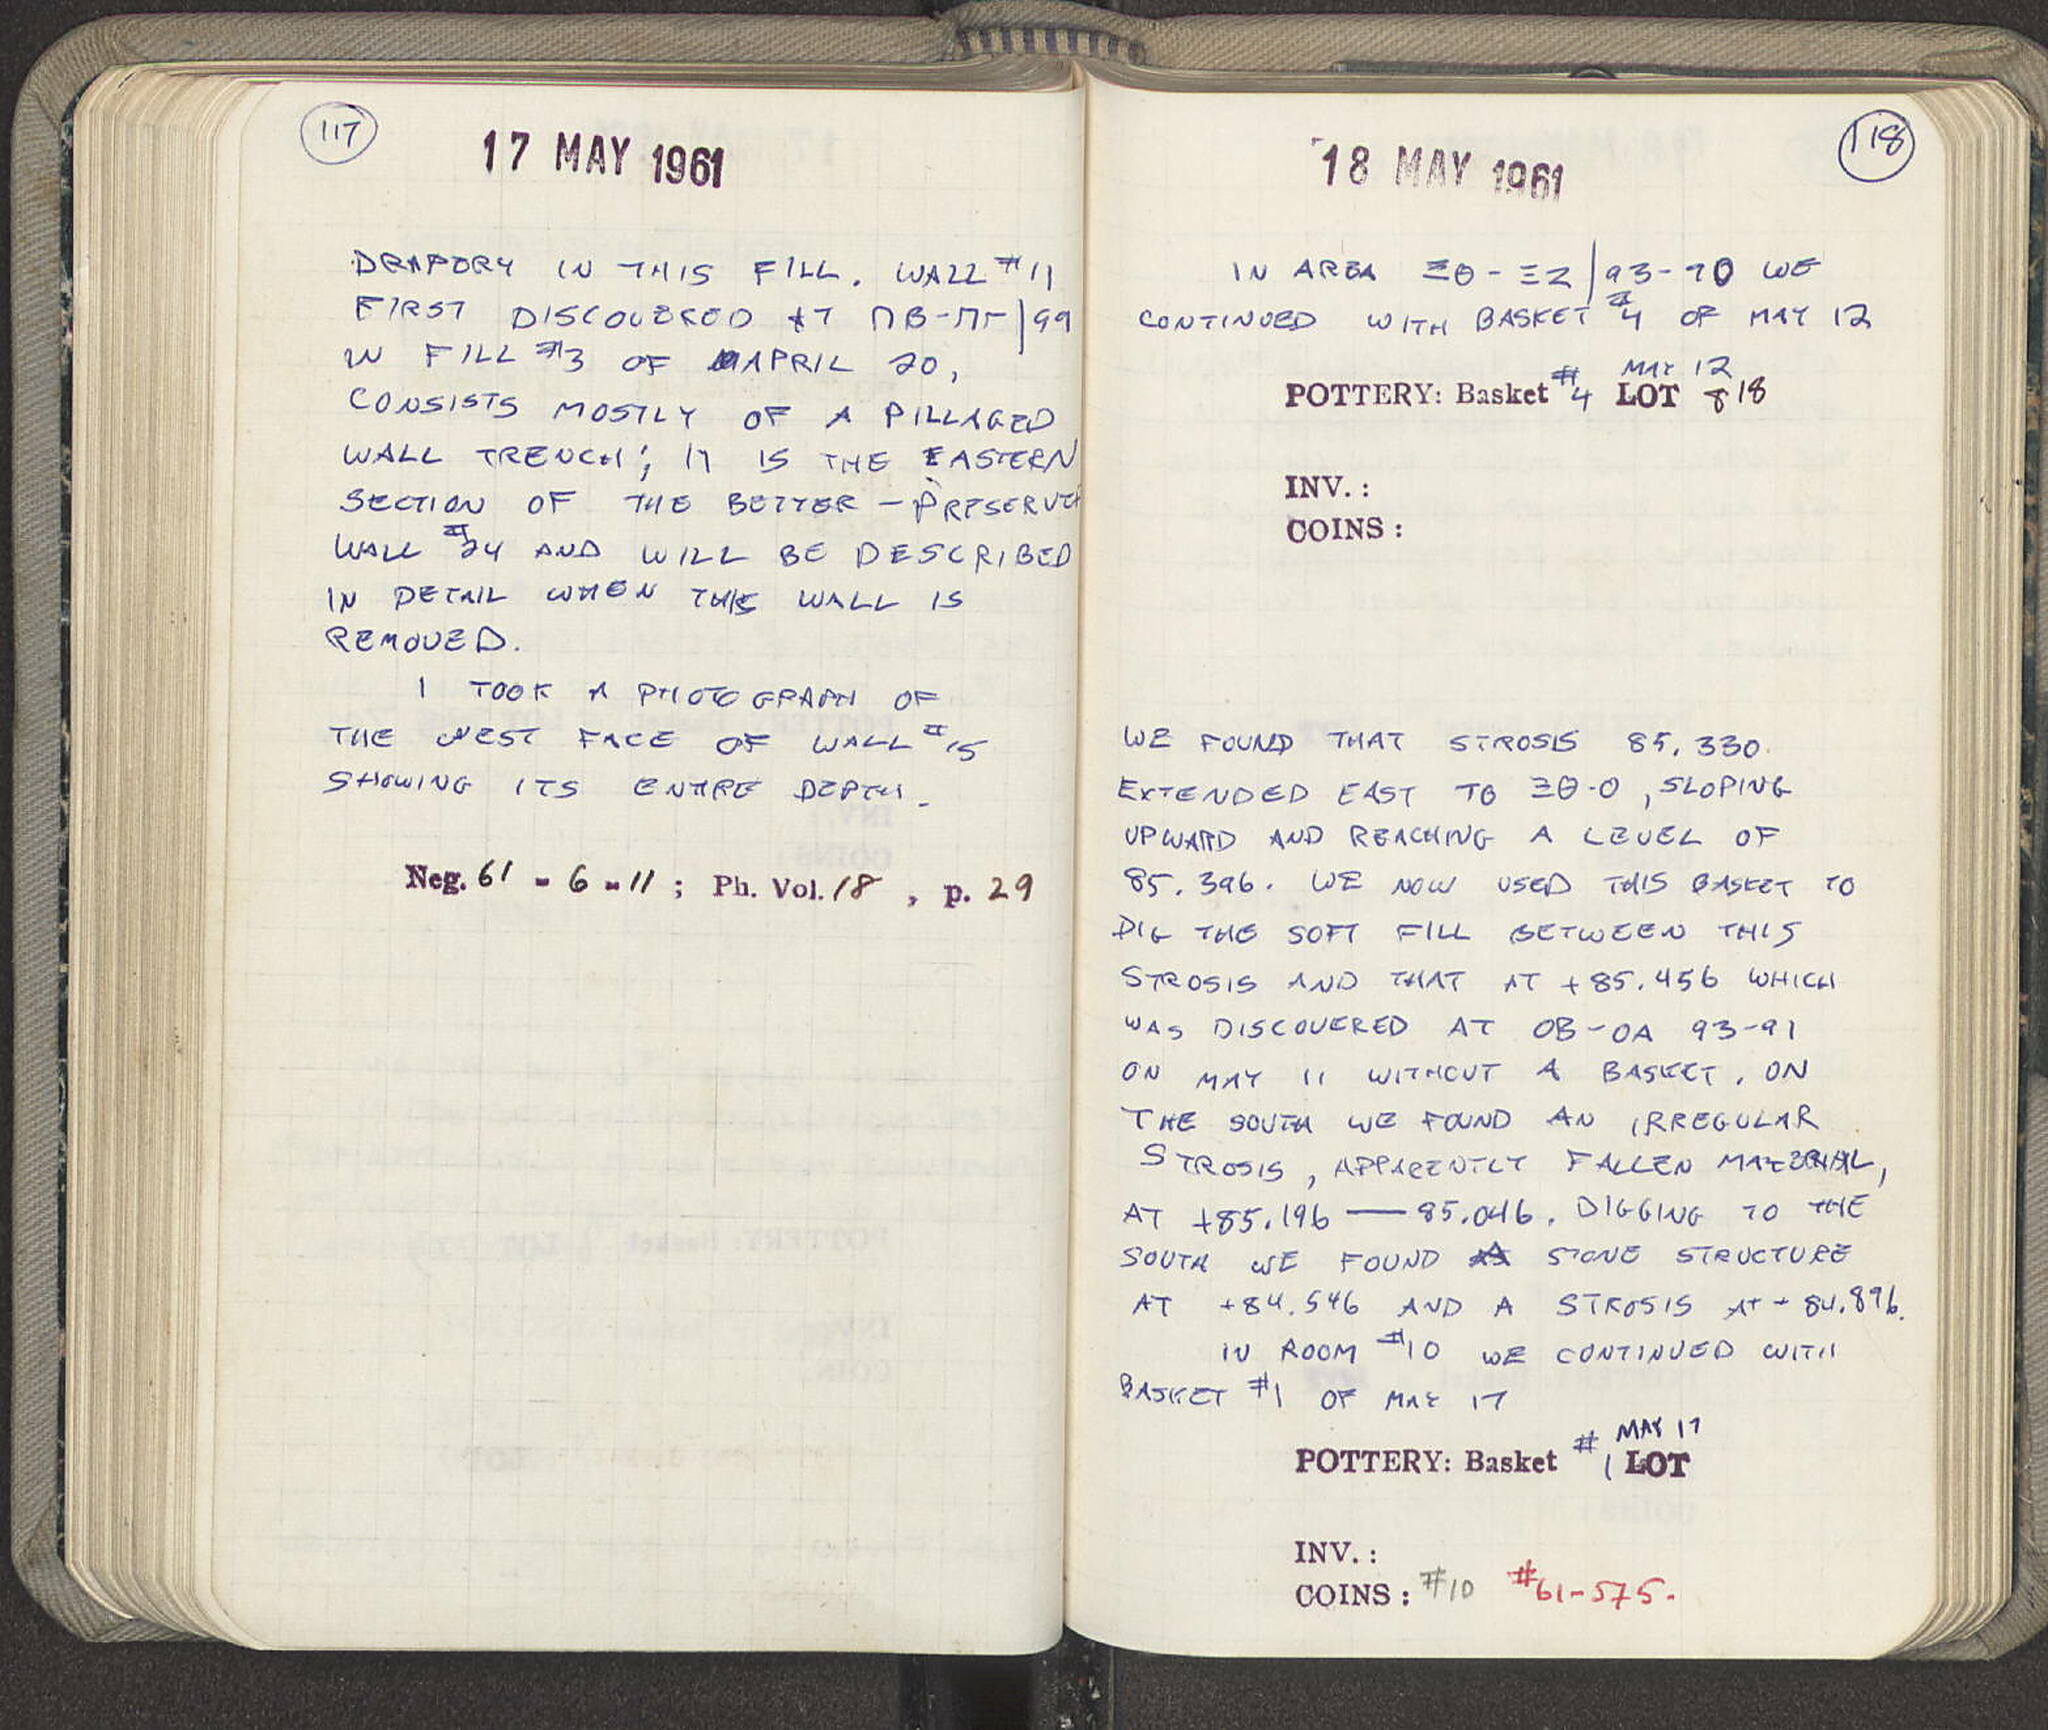 117
17 MAY 1961
DRAPERY IN THIS FILL. WALL #11
FIRST DISCOVERED AT ΠΒ-ΠΓ|99
IN FILL #3 OF APRIL 20,
CONSISTS MOSTLY OF A PILLAGED
WALL TRENCH; IT IS THE EASTERN
SECTION OF THE BETTER-PRESERVED
WALL #24 AND WILL BE DESCRIBED
IN DETAIL WHEN THIS WALL IS
REMOVED.
I TOOK A PHOTOGRAPH OF
THE WEST FACE OF WALL #15
SHOWING ITS ENTIRE DEPTH.
Neg. 61 - 6 - 11 ; Ph. Vol. 18 , p. 29
118
18 MAY 1961
IN AREA ΞΘ-ΞΖ|93-90 WE
CONTINUED WITH BASKET #4 OF MAY 12
MAY 12
POTTERY: Basket #4 LOT 818
INV. :
COINS :
WE FOUND THAT STROSIS 85.330
EXTENDED EAST TO ΞΘ-Ο, SLOPING
UPWARD AND REACHING A LEVEL OF
85.396. WE NOW USED THIS BASKET TO
DIG THE SOFT FILL BETWEEN THIS
STROSIS AND THAT AT +85.456 WHICH
WAS DISCOVERED AT ΟΒ-ΟΑ 93-91
ON MAY 11 WITHOUT A BASKET. ON
THE SOUTH WE FOUND AN IRREGULAR
STROSIS, APPARENTLY FALLEN MATERIAL,
AT +85.196 — 85.046. DIGGING TO THE
SOUTH WE FOUND A STONE STRUCTURE
AT +84.546 AND A STROSIS AT +84.896.
IN ROOM #10 WE CONTINUED WITH
BASKET #1 OF MAY 17
MAY 17
POTTERY: Basket #1 LOT
INV. :
COINS : #10 #61-575.